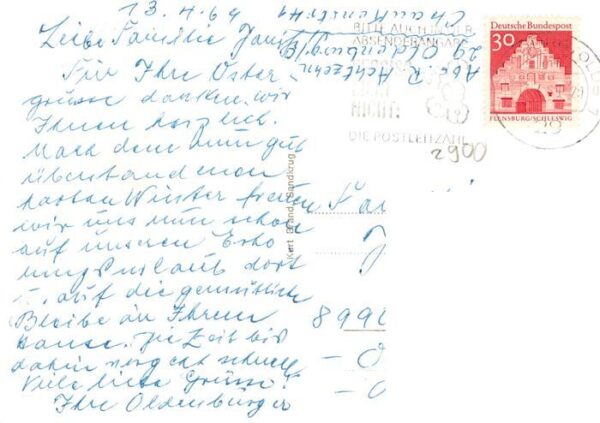 13.4.64
Liebe Familie
Für Ihre Oster-
grüsse danken wir
Ihnen herzlich.
Nach dem nun gut
überstandenen
harten Winter freuen
wir uns nun schon
auf unseren Erho
lungsurlaub dort
u. auf die gemütliche
Bleibe in Ihrem
Hause. Die Zeit bis
dahin vergeht schnell
Viele liebe Grüsse!
Ihre Oldenburger
Abs. R. Achtzehn
29 Oldenburg
BITTE AUCH IN DER
ABSENDERANGABE
NICHT:
DIE POSTLEITZAHL
2900
Deutsche Bundespost
30
FLENSBURG/SCHLESWIG
Kurt Brand, Sandkrug
Fa
899